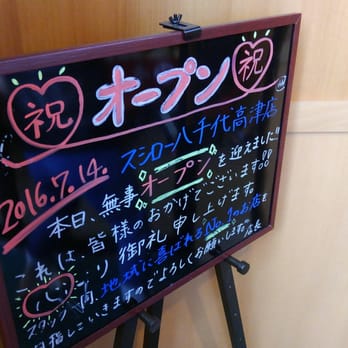 祝 オープン 祝
2016.7.14. スシロー八千代高津店
本日、無事オープンを迎えました!!
これは、皆様のおかげでございます!!
心より御礼申し上げます。
スタッフ一同、地域に喜ばれるNo.1のお店を
目指していきますのでよろしくお願いします。店長